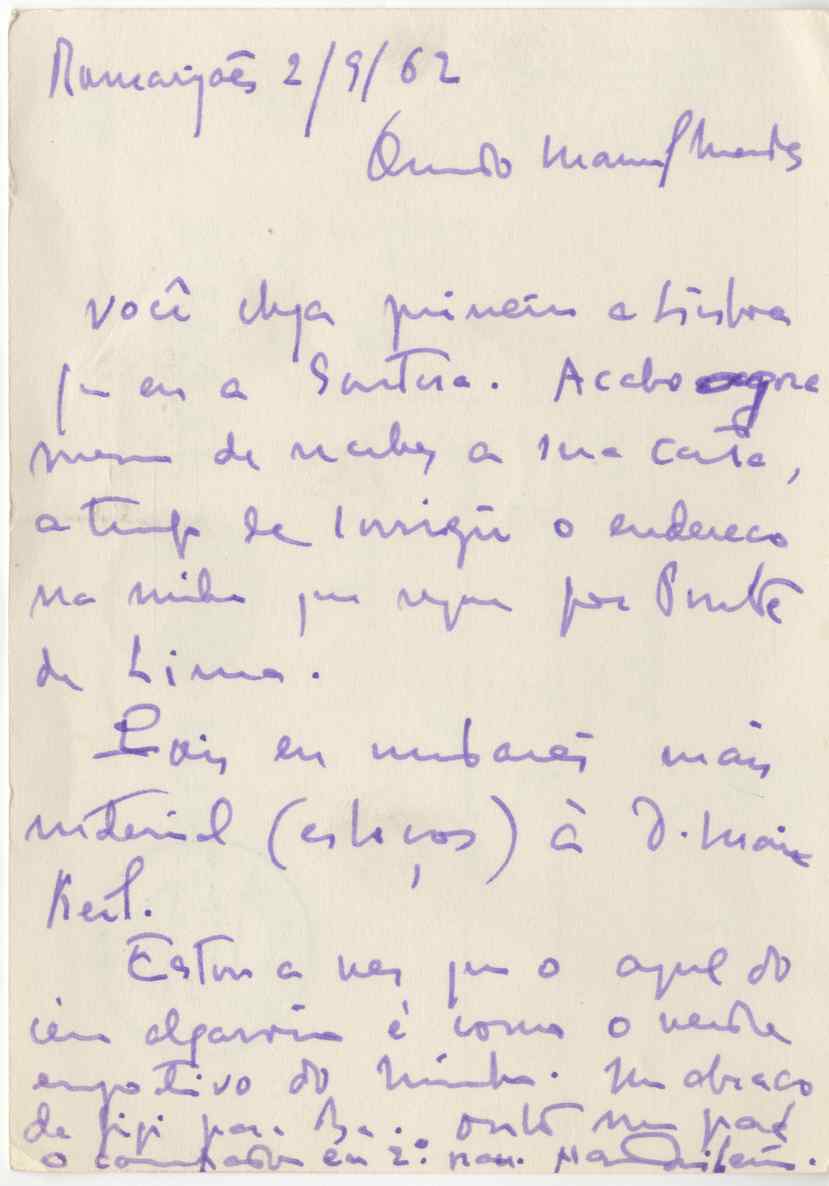 Romarigães 2/9/62
Querido Manuel Mendes
Você chega primeiro a Lisboa
que eu a Soutosa. Acabo agora
mesmo de receber a sua carta,
a tempo de corrigir o endereço
na minha que segue por Ponte
de Lima.
Pois eu mandarei mais
material (esboços) à D. Maria
Keil.
Estou a ver que o azul do
céu algarvio é como o verde
do Minho. Um abraço
da Gigi para
o em 2º. Aquilino.